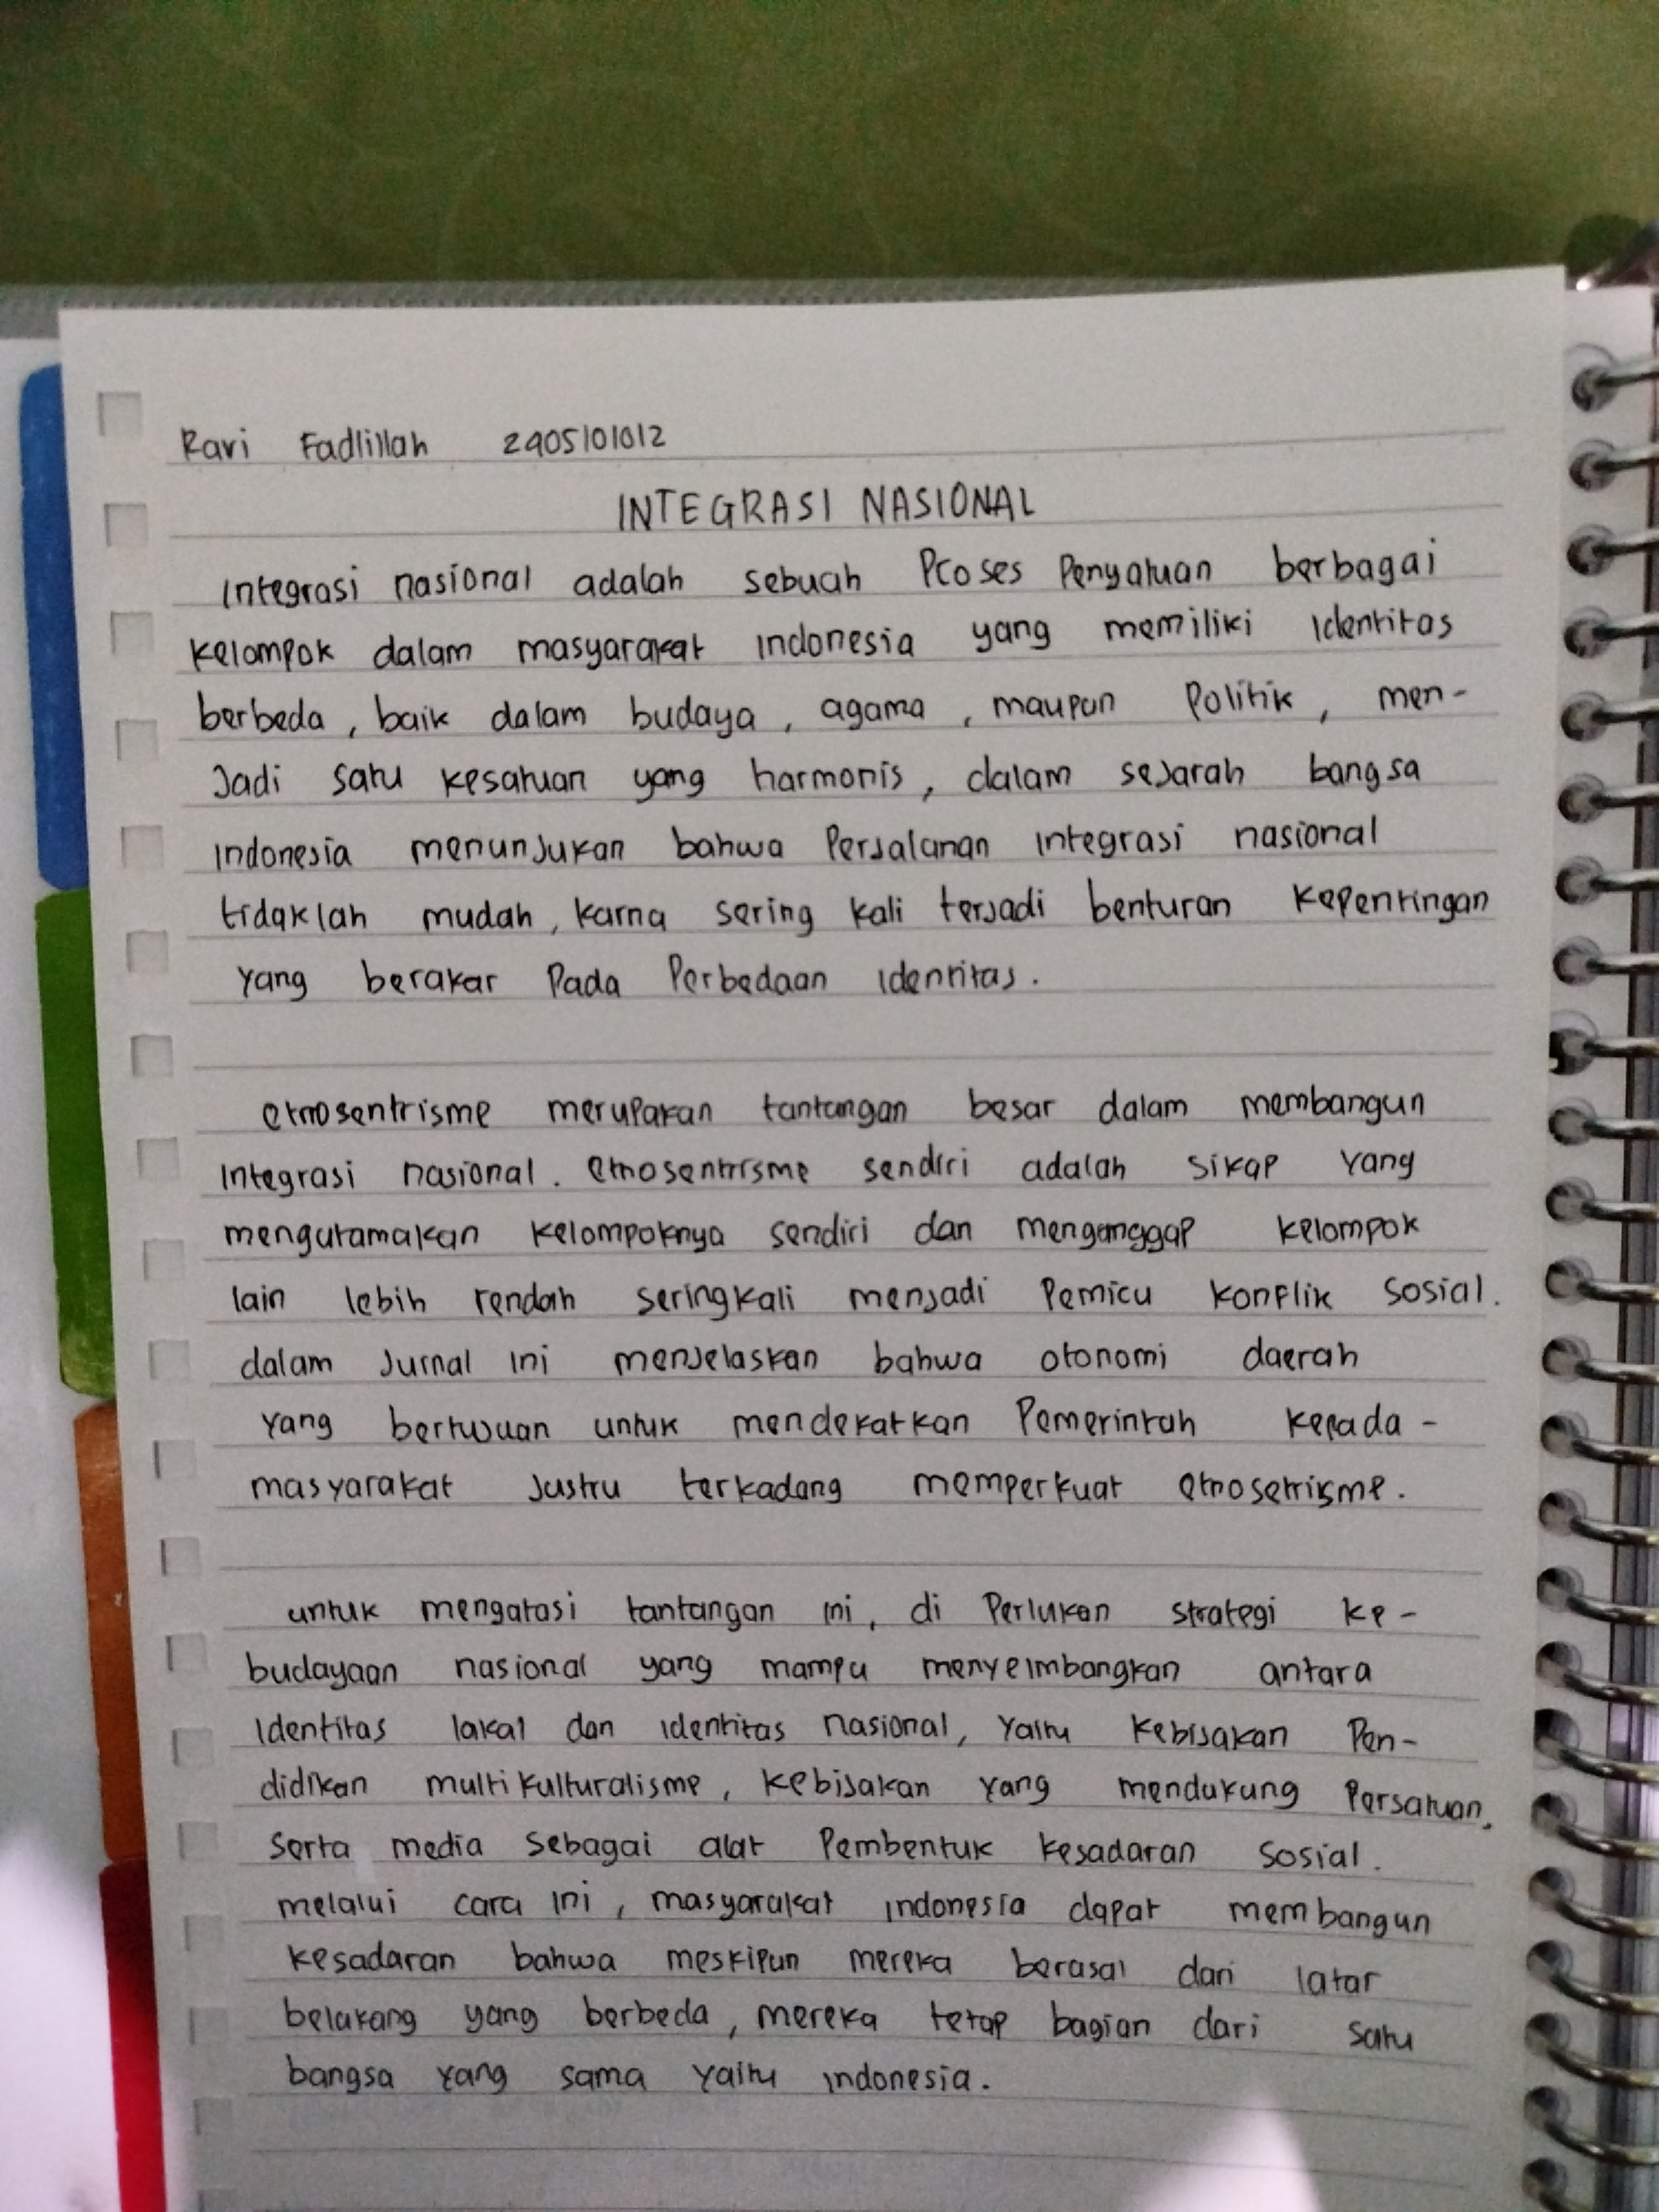 Ravi Fadlillah 2405101012
INTEGRASI NASIONAL
Integrasi nasional adalah sebuah Proses Penyatuan berbagai
kelompok dalam masyarakat indonesia yang memiliki Identitas
berbeda , baik dalam budaya , agama , maupun Politik , men-
Jadi satu kesatuan yang harmonis , dalam sejarah bangsa
indonesia menunjukan bahwa Perjalanan integrasi nasional
tidaklah mudah , karna sering kali terjadi benturan kepentingan
yang berakar Pada Perbedaan identitas .
etnosentrisme merupakan tantangan besar dalam membangun
Integrasi nasional . etnosentrisme sendiri adalah sikap yang
mengutamakan kelompoknya sendiri dan menganggap kelompok
lain lebih rendah seringkali menjadi Pemicu konflik sosial .
dalam Jurnal ini menjelaskan bahwa otonomi daerah
yang bertujuan untuk mendekatkan Pemerintah kepada -
masyarakat Justru terkadang memperkuat etnosetrisme .
untuk mengatasi tantangan ini , di Perlukan strategi ke -
budayaan nasional yang mampu menyeimbangkan antara
Identitas lakal dan identitas nasional , yaitu kebijakan Pen-
didikan multikulturalisme , kebijakan yang mendukung Persatuan ,
serta media sebagai alat Pembentuk kesadaran sosial .
melalui cara ini , masyarakat indonesia dapat membangun
kesadaran bahwa meskipun mereka berasal dari latar
belakang yang berbeda , mereka tetap bagian dari satu
bangsa yang sama yaitu indonesia .